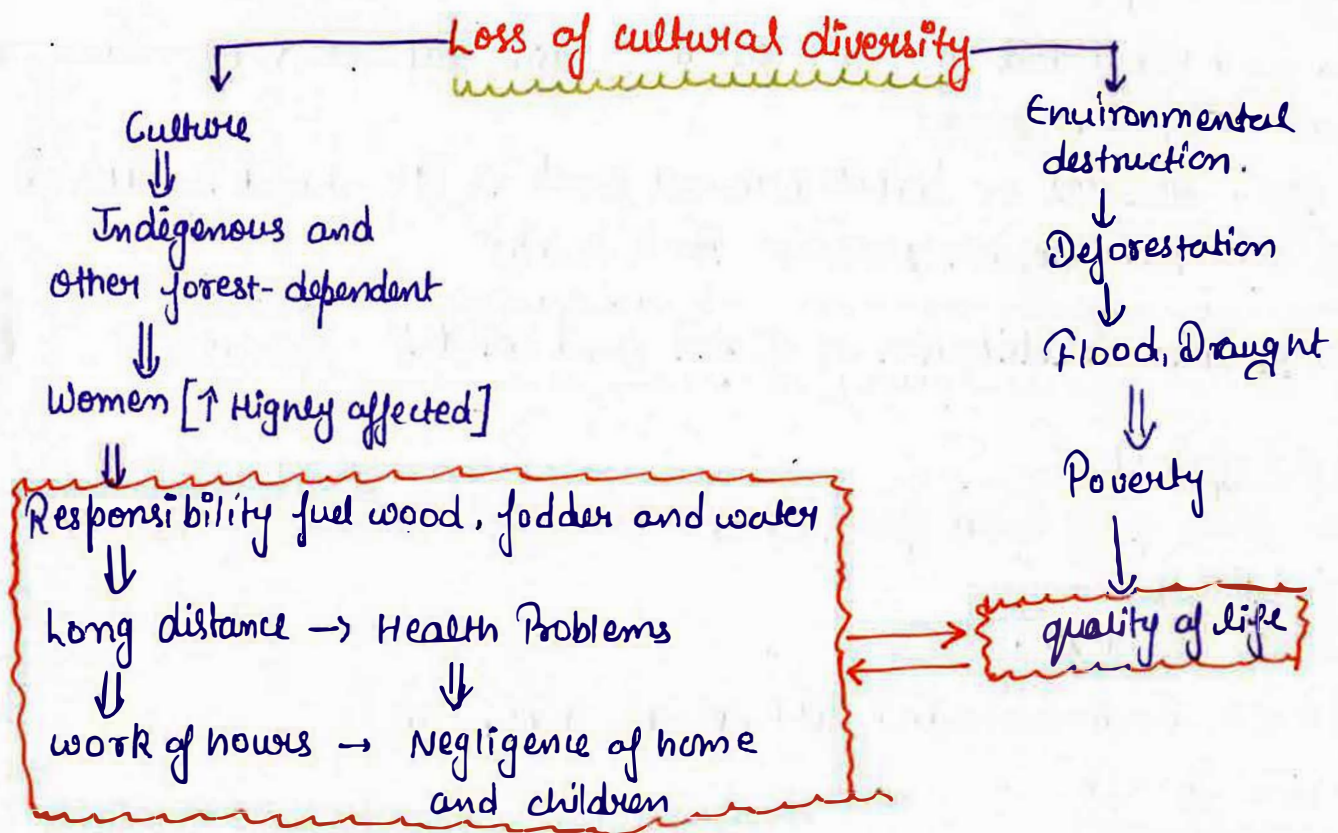 Loss of cultural diversity
Culture
⇓
Indigenous and
other forest-dependent
⇓
Women [↑ Highly affected]
⇓
Responsibility fuel wood, fodder and water
⇓
Long distance → Health Problems
⇓ ⇓
work of hours → Negligence of home
and children
Environmental
destruction.
↓
Deforestation
↓
Flood, Draught
⇓
Poverty
↓
quality of life